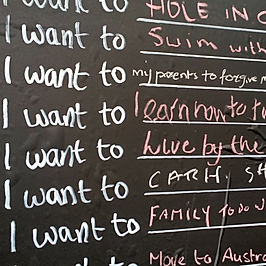 I want to HOLE IN
I want to Swim with
I want to my parents to forgive
I want to learn how to
I want to Live by the
I want to
I want to FAMILY TO DO
I want to Move to Austra